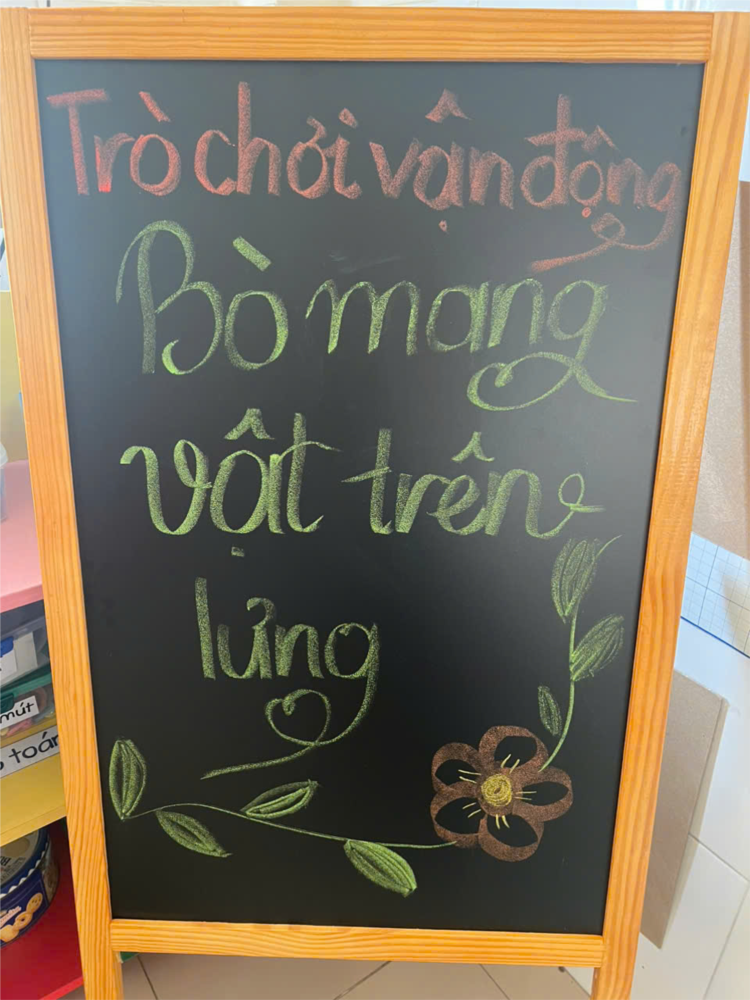 Trò chơi vận động
Bò mang
vật trên
lưng
mút
toán